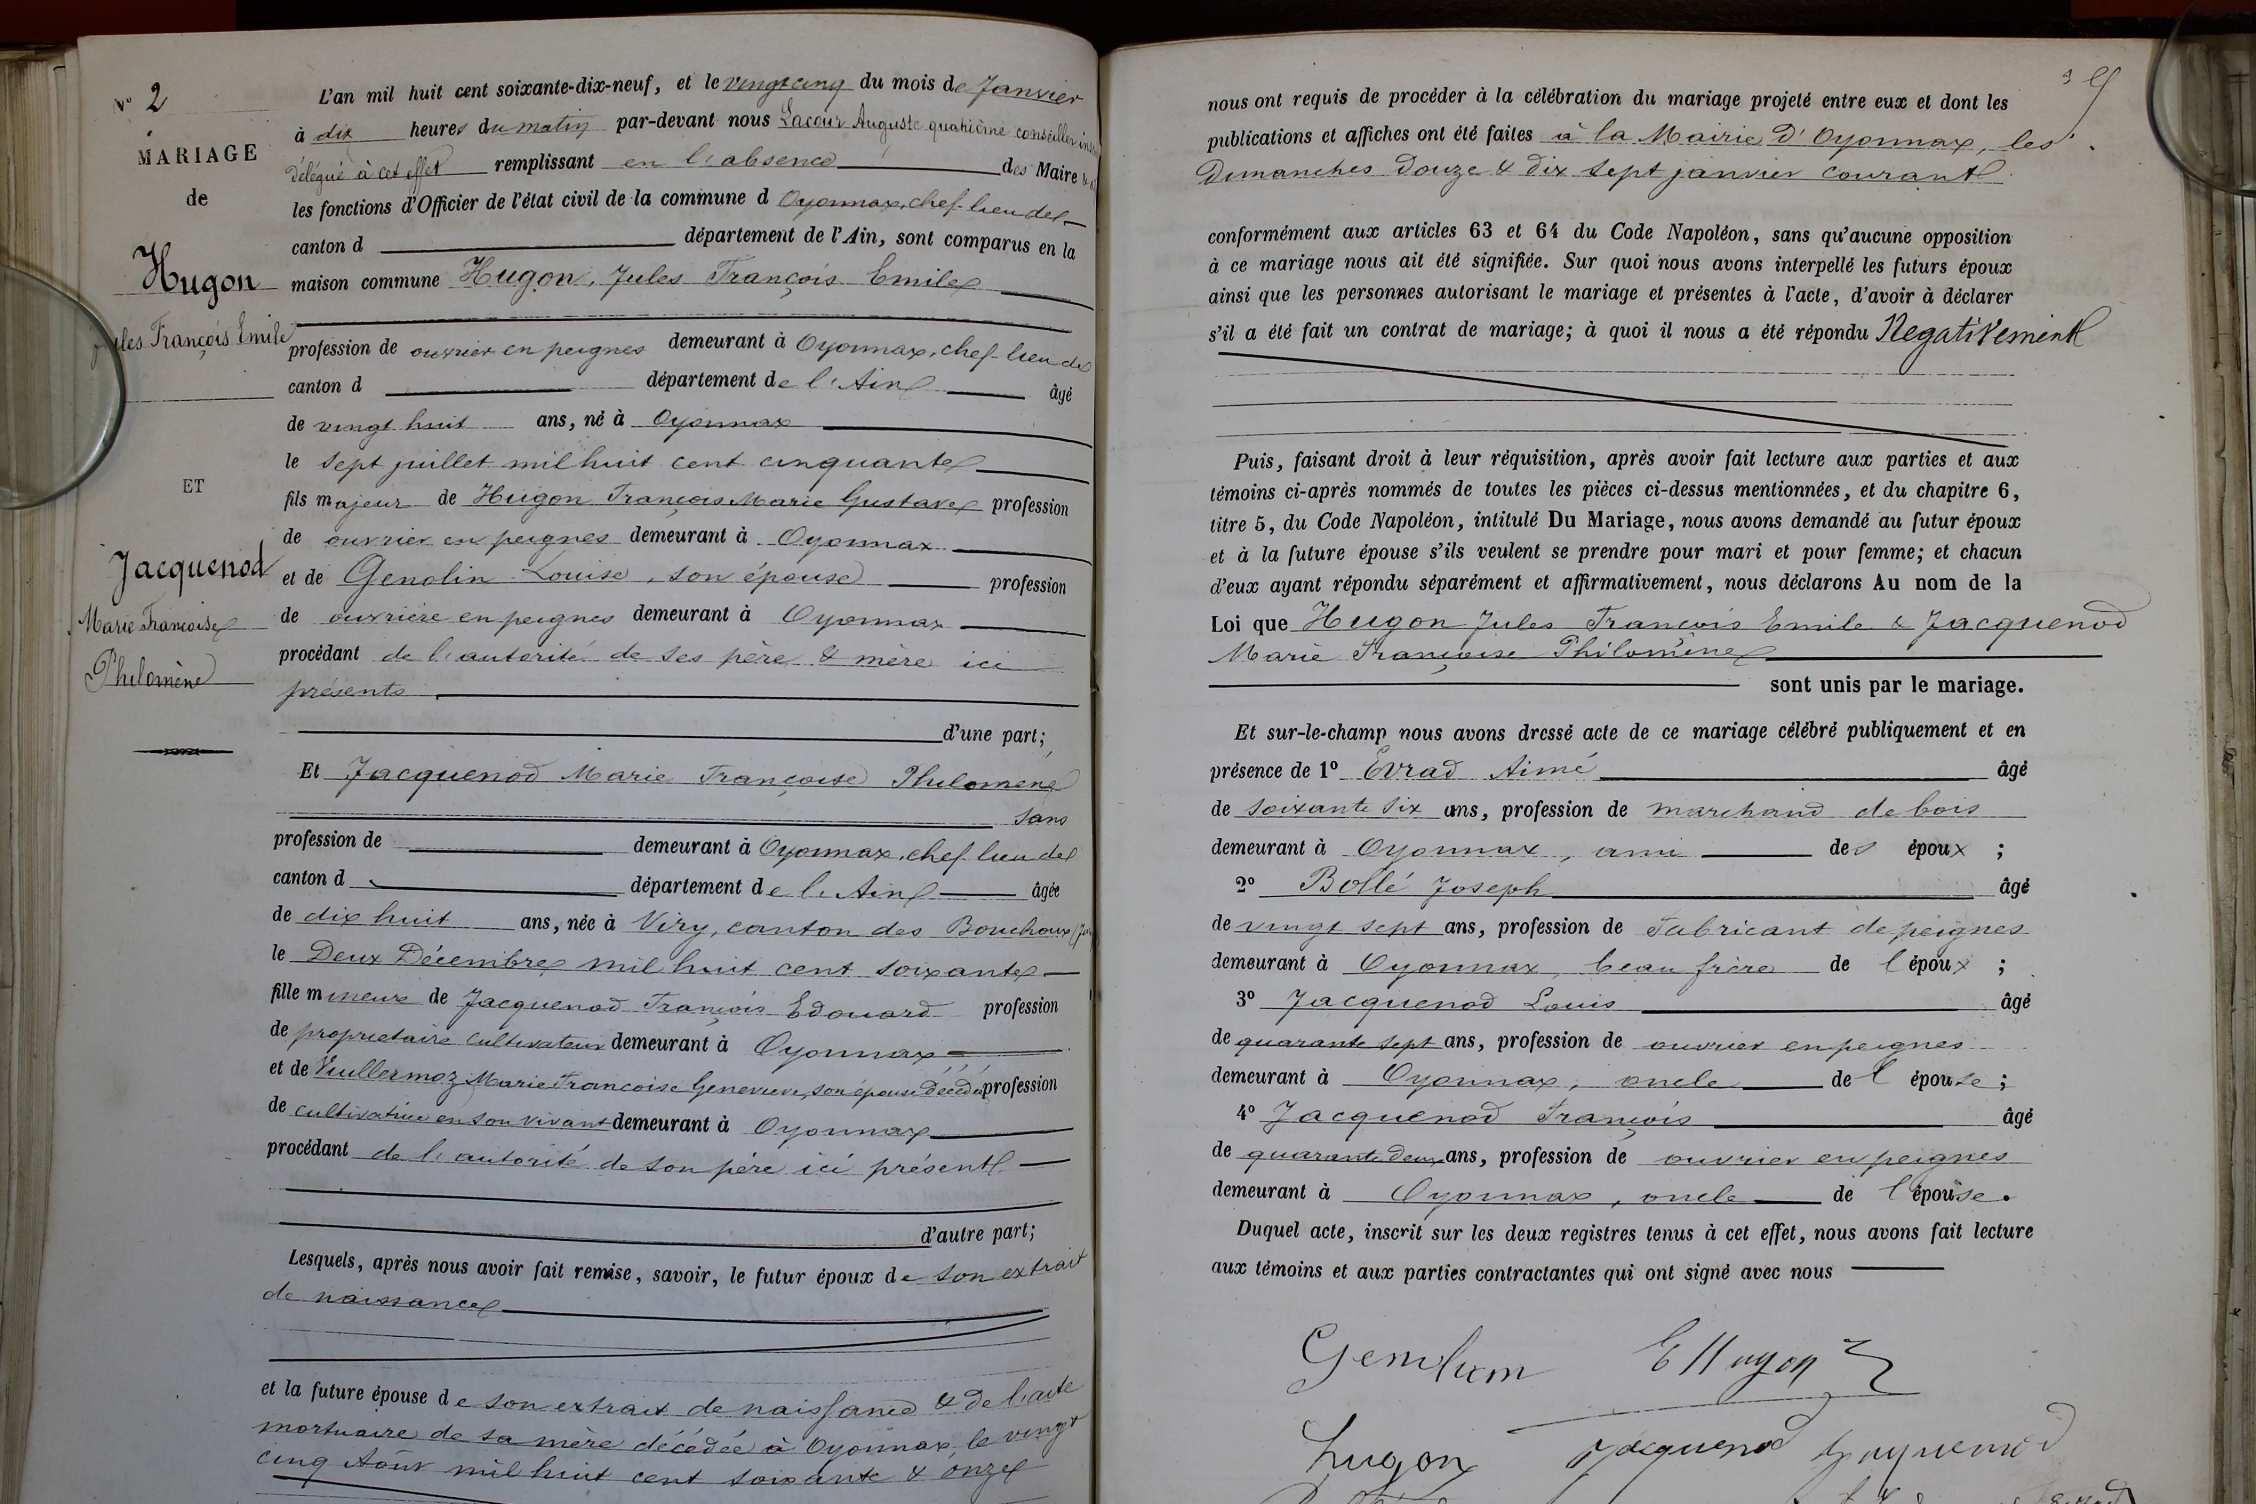 N° 2
MARIAGE
de
Hugon
Jules François Emile
ET
Jacquenod
Marie Francoise
Philomène
L'an mil huit cent soixante-dix-neuf, et le vingt cinq du mois de Janvier
à dix heures du matin par-devant nous Lacour Auguste quatrième conseiller
délégué à cet effet remplissant en l'absence des Maire
les fonctions d'Officier de l'état civil de la commune d Oyonnax, chef-lieu de
canton d département de l'Ain, sont comparus en la
maison commune Hugon, Jules François Emile
profession de ouvrier en peignes demeurant à Oyonnax, chef-lieu de
canton d département de l'Ain âgé
de vingt huit ans, né à Oyonnax
le sept juillet mil huit cent cinquante
fils majeur de Hugon François Marie Gustave profession
de ouvrier en peignes demeurant à Oyonnax
et de Genolin Louise, son épouse profession
de ouvrière en peignes demeurant à Oyonnax
procédant de l'autorité de ses père & mère ici
présents
d'une part;
Et Jacquenod Marie Françoise Philomene
sans
profession de demeurant à Oyonnax, chef-lieu de
canton d département de l'Ain âgée
de dix huit ans, née à Viry, canton des Bouchoux
le Deux Décembre mil huit cent soixante
fille mineure de Jacquenod François Edouard profession
de propriétaire cultivateur demeurant à Oyonnax
et de Vuillermoz Marie Francoise Genevieve, son épouse décédée profession
de cultivatrice en son vivant demeurant à Oyonnax
procédant de l'autorité de son père ici présent
d'autre part;
Lesquels, après nous avoir fait remise, savoir, le futur époux de son extrait
de naissance
et la future épouse de son extrait de naissance & de l'acte
mortuaire de sa mère décédée à Oyonnax, le vingt
cinq Août mil huit cent soixante & onze
nous ont requis de procéder à la célébration du mariage projeté entre eux et dont les
publications et affiches ont été faites à la Mairie d'Oyonnax, les
Dimanches Douze & dix sept janvier courant
conformément aux articles 63 et 64 du Code Napoléon, sans qu'aucune opposition
à ce mariage nous ait été signifiée. Sur quoi nous avons interpellé les futurs époux
ainsi que les personnes autorisant le mariage et présentes à l'acte, d'avoir à déclarer
s'il a été fait un contrat de mariage; à quoi il nous a été répondu Negativement
Puis, faisant droit à leur réquisition, après avoir fait lecture aux parties et aux
témoins ci-après nommés de toutes les pièces ci-dessus mentionnées, et du chapitre 6,
titre 5, du Code Napoléon, intitulé Du Mariage, nous avons demandé au futur époux
et à la future épouse s'ils veulent se prendre pour mari et pour femme; et chacun
d'eux ayant répondu séparément et affirmativement, nous déclarons Au nom de la
Loi que Hugon Jules François Emile & Jacquenod
Marie Françoise Philomène
sont unis par le mariage.
Et sur-le-champ nous avons dressé acte de ce mariage célébré publiquement et en
présence de 1° Evrad Aimé âgé
de soixante six ans, profession de marchand de bois
demeurant à Oyonnax, ami des époux ;
2° Bollé Joseph âgé
de vingt sept ans, profession de Fabricant de peignes
demeurant à Oyonnax, beau frère de l'époux ;
3° Jacquenod Louis âgé
de quarante sept ans, profession de ouvrier en peignes
demeurant à Oyonnax, oncle de l'épouse ;
4° Jacquenod François âgé
de quarante deux ans, profession de ouvrier en peignes
demeurant à Oyonnax, oncle de l'épouse.
Duquel acte, inscrit sur les deux registres tenus à cet effet, nous avons fait lecture
aux témoins et aux parties contractantes qui ont signé avec nous
E Hugon
hugon Jacquenod